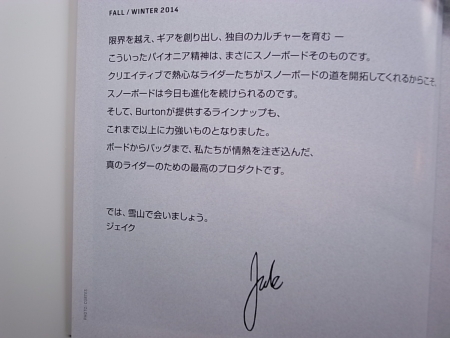 FALL / WINTER 2014
限界を越え、ギアを創り出し、独自のカルチャーを育む ー
こういったパイオニア精神は、まさにスノーボードそのものです。
クリエイティブで熱心なライダーたちがスノーボードの道を開拓してくれるからこそ、
スノーボードは今日も進化を続けられるのです。
そして、Burtonが提供するラインナップも、
これまで以上に力強いものとなりました。
ボードからバッグまで、私たちが情熱を注ぎ込んだ、
真のライダーのための最高のプロダクトです。
では、雪山で会いましょう。
ジェイク
Jake